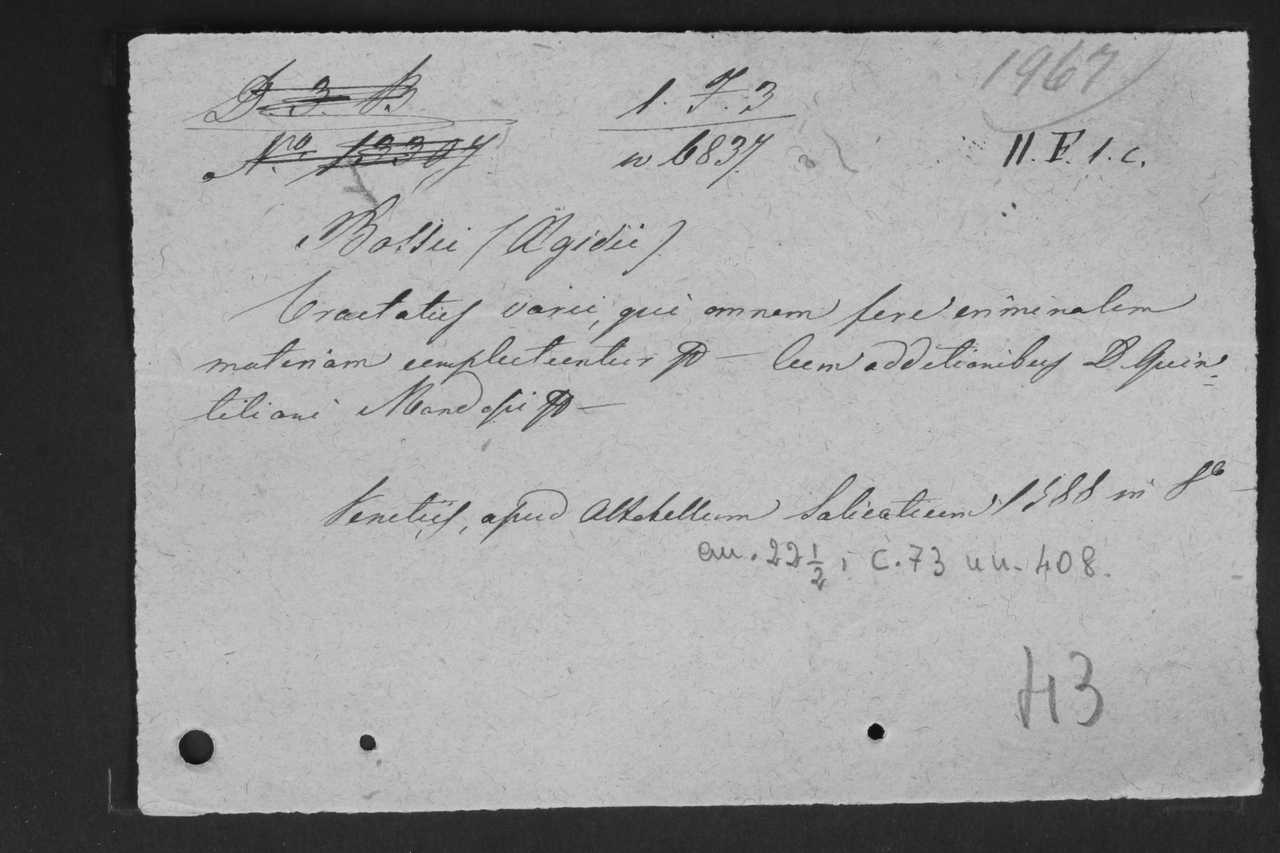 D. 3. B. 1. F. 3 1967
Nro. 13307 n 6837. II. F. 1. c.
Bossii (Ægidii)
Tractatus varii, qui omnem fere criminalem
materiam complectuntur — Cum additionibus D. Quin=
tiliani Mandosii —
Venetiis, apud Altobellum Salicatium 1588 in 8o
cm. 22 1/2, c. 73 nn. 408.
43